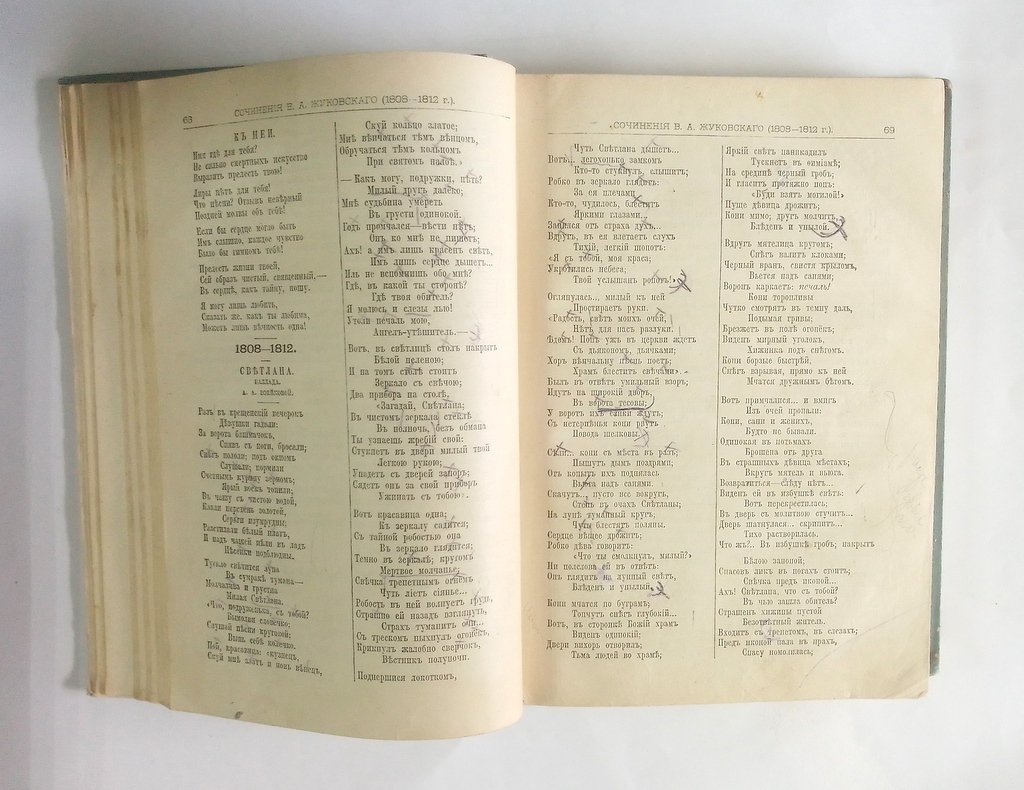 68
СОЧИНЕНІЯ В. А. ЖУКОВСКАГО (1808—1812 г.).
КЪ НЕЙ.
Имя гдѣ для тебя?
Не сильно смертныхъ искусство
Выразить прелесть твою!
Лиры нѣтъ для тебя!
Что пѣсни? Отзывъ невѣрный
Поздней молвы объ тебѣ!
Если бы сердце могло быть
Имъ слышно, каждое чувство
Было бы гимномъ тебѣ!
Прелесть жизни твоей,
Сей образъ чистый, священный,—
Въ сердцѣ, какъ тайну, ношу.
Я могу лишь любить,
Сказать же, какъ ты любима,
Можетъ лишь вѣчность одна!
1808—1812.
СВѢТЛАНА.
БАЛЛАДА.
А. А. ВОЕЙКОВОЙ.
Разъ въ крещенскій вечерокъ
Дѣвушки гадали:
За ворота башмачокъ,
Снявъ съ ноги, бросали;
Снѣгъ пололи; подъ окномъ
Слушали; кормили
Счетнымъ курицу зерномъ;
Ярый воскъ топили;
Въ чашу съ чистою водой,
Клали перстень золотой,
Серьги изумрудны;
Разстилали бѣлый платъ,
И надъ чашей пѣли въ ладъ
Пѣсенки подблюдны.
Тускло свѣтится луна
Въ сумракѣ тумана—
Молчалива и грустна
Милая Свѣтлана.
«Что, подруженька, съ тобой?
Вымолви словечко;
Слушай пѣсни круговой;
Вынь себѣ колечко.
Пой, красавица: «кузнецъ,
Скуй мнѣ златъ и новъ вѣнецъ,
Скуй кольцо златое;
Мнѣ вѣнчаться тѣмъ вѣнцомъ,
Обручаться тѣмъ кольцомъ
При святомъ налоѣ.»
— Какъ могу, подружки, пѣть?
Милый другъ далеко;
Мнѣ судьбина умереть
Въ грусти одинокой.
Годъ промчался—вѣсти нѣтъ;
Онъ ко мнѣ не пишетъ;
Ахъ! а имъ лишь красенъ свѣтъ,
Имъ лишь сердце дышетъ...
Иль не вспомнишь обо мнѣ?
Гдѣ, въ какой ты сторонѣ?
Гдѣ твоя обитель?
Я молюсь и слезы лью!
Утоли печаль мою,
Ангелъ-утѣшитель.—
Вотъ, въ свѣтлицѣ столъ накрытъ
Бѣлой пеленою;
И на томъ столѣ стоитъ
Зеркало съ свѣчою;
Два прибора на столѣ.
«Загадай, Свѣтлана;
Въ чистомъ зеркала стеклѣ
Въ полночь, безъ обмана
Ты узнаешь жребій свой:
Стукнетъ въ двери милый твой
Легкою рукою;
Упадетъ съ дверей запоръ;
Сядетъ онъ за свой приборъ
Ужинать съ тобою».
Вотъ красавица одна;
Къ зеркалу садится;
Съ тайной робостью она
Въ зеркало глядится;
Темно въ зеркалѣ; кругомъ
Мертвое молчанье;
Свѣчка трепетнымъ огнемъ
Чуть ліетъ сіянье...
Робость въ ней волнуетъ грудь,
Страшно ей назадъ взглянуть,
Страхъ туманитъ очи...
Съ трескомъ пыхнулъ огонекъ,
Крикнулъ жалобно сверчокъ,
Вѣстникъ полуночи.
Подпершися локоткомъ,
СОЧИНЕНІЯ В. А. ЖУКОВСКАГО (1808—1812 г.).
69
Чуть Свѣтлана дышетъ...
Вотъ... легохонько замкомъ
Кто-то стукнулъ, слышитъ;
Робко въ зеркало глядитъ:
За ея плечами
Кто-то, чудилось, блеститъ
Яркими глазами...
Занялся отъ страха духъ...
Вдругъ, въ ея влетаетъ слухъ
Тихій, легкій шопотъ:
«Я съ тобой, моя краса;
Укротились небеса;
Твой услышанъ ропотъ!»
Оглянулась... милый къ ней
Простираетъ руки.
«Радость, свѣтъ моихъ очей,
Нѣтъ для насъ разлуки.
Ѣдемъ! Попъ ужъ въ церкви ждетъ
Съ дьякономъ, дьячками;
Хоръ вѣнчальну пѣснь поетъ;
Храмъ блеститъ свѣчами».
Былъ въ отвѣтъ умильный взоръ;
Идутъ на широкій дворъ,
Въ ворота тесовы;
У воротъ ихъ санки ждутъ;
Съ нетерпѣнья кони рвутъ
Повода шелковы.
Сѣли... кони съ мѣста въ разъ;
Пышутъ дымъ ноздрями;
Отъ копытъ ихъ поднялась
Вьюга надъ санями.
Скачутъ... пусто все вокругъ,
Степь въ очахъ Свѣтланы;
На лунѣ туманный кругъ;
Чуть блестятъ поляны.
Сердце вѣщее дрожитъ;
Робко дѣва говоритъ:
«Что ты смолкнулъ, милый?»
Ни полслова ей въ отвѣтъ:
Онъ глядитъ на лунный свѣтъ,
Блѣденъ и унылый.
Кони мчатся по буграмъ;
Топчутъ снѣгъ глубокій...
Вотъ, въ сторонкѣ Божій храмъ
Виденъ одинокій;
Двери вихорь отворилъ;
Тьма людей во храмѣ;
Яркій свѣтъ паникадилъ
Тускнетъ въ ѳиміамѣ;
На срединѣ черный гробъ;
И гласитъ протяжно попъ:
«Буди взятъ могилой!»
Пуще дѣвица дрожитъ;
Кони мимо; другъ молчитъ,
Блѣденъ и унылой.
Вдругъ мятелица кругомъ;
Снѣгъ валитъ клоками;
Черный вранъ, свистя крыломъ,
Вьется надъ санями;
Воронъ каркаетъ: печаль!
Кони торопливы
Чутко смотрятъ въ темну даль,
Подымая гривы;
Брезжетъ въ полѣ огонёкъ;
Виденъ мирный уголокъ,
Хижинка подъ снѣгомъ.
Кони борзые быстрѣй,
Снѣгъ взрывая, прямо къ ней
Мчатся дружнымъ бѣгомъ.
Вотъ примчалися... и вмигъ
Изъ очей пропали:
Кони, сани и женихъ,
Будто не бывали.
Одинокая въ потьмахъ
Брошена отъ друга
Въ страшныхъ дѣвица мѣстахъ;
Вкругъ мятель и вьюга.
Возвратиться—слѣду нѣтъ...
Виденъ ей въ избушкѣ свѣтъ:
Вотъ перекрестилась;
Въ дверь съ молитвою стучитъ...
Дверь шатнулася... скрипитъ...
Тихо растворилась.
Что жъ?.. Въ избушкѣ гробъ; накрытъ
Бѣлою запоной;
Спасовъ ликъ въ ногахъ стоитъ;
Свѣчка предъ иконой...
Ахъ! Свѣтлана, что съ тобой?
Въ чью зашла обитель?
Страшенъ хижины пустой
Безотвѣтный житель.
Входитъ съ трепетомъ, въ слезахъ;
Предъ иконой пала въ прахъ,
Спасу помолилась;